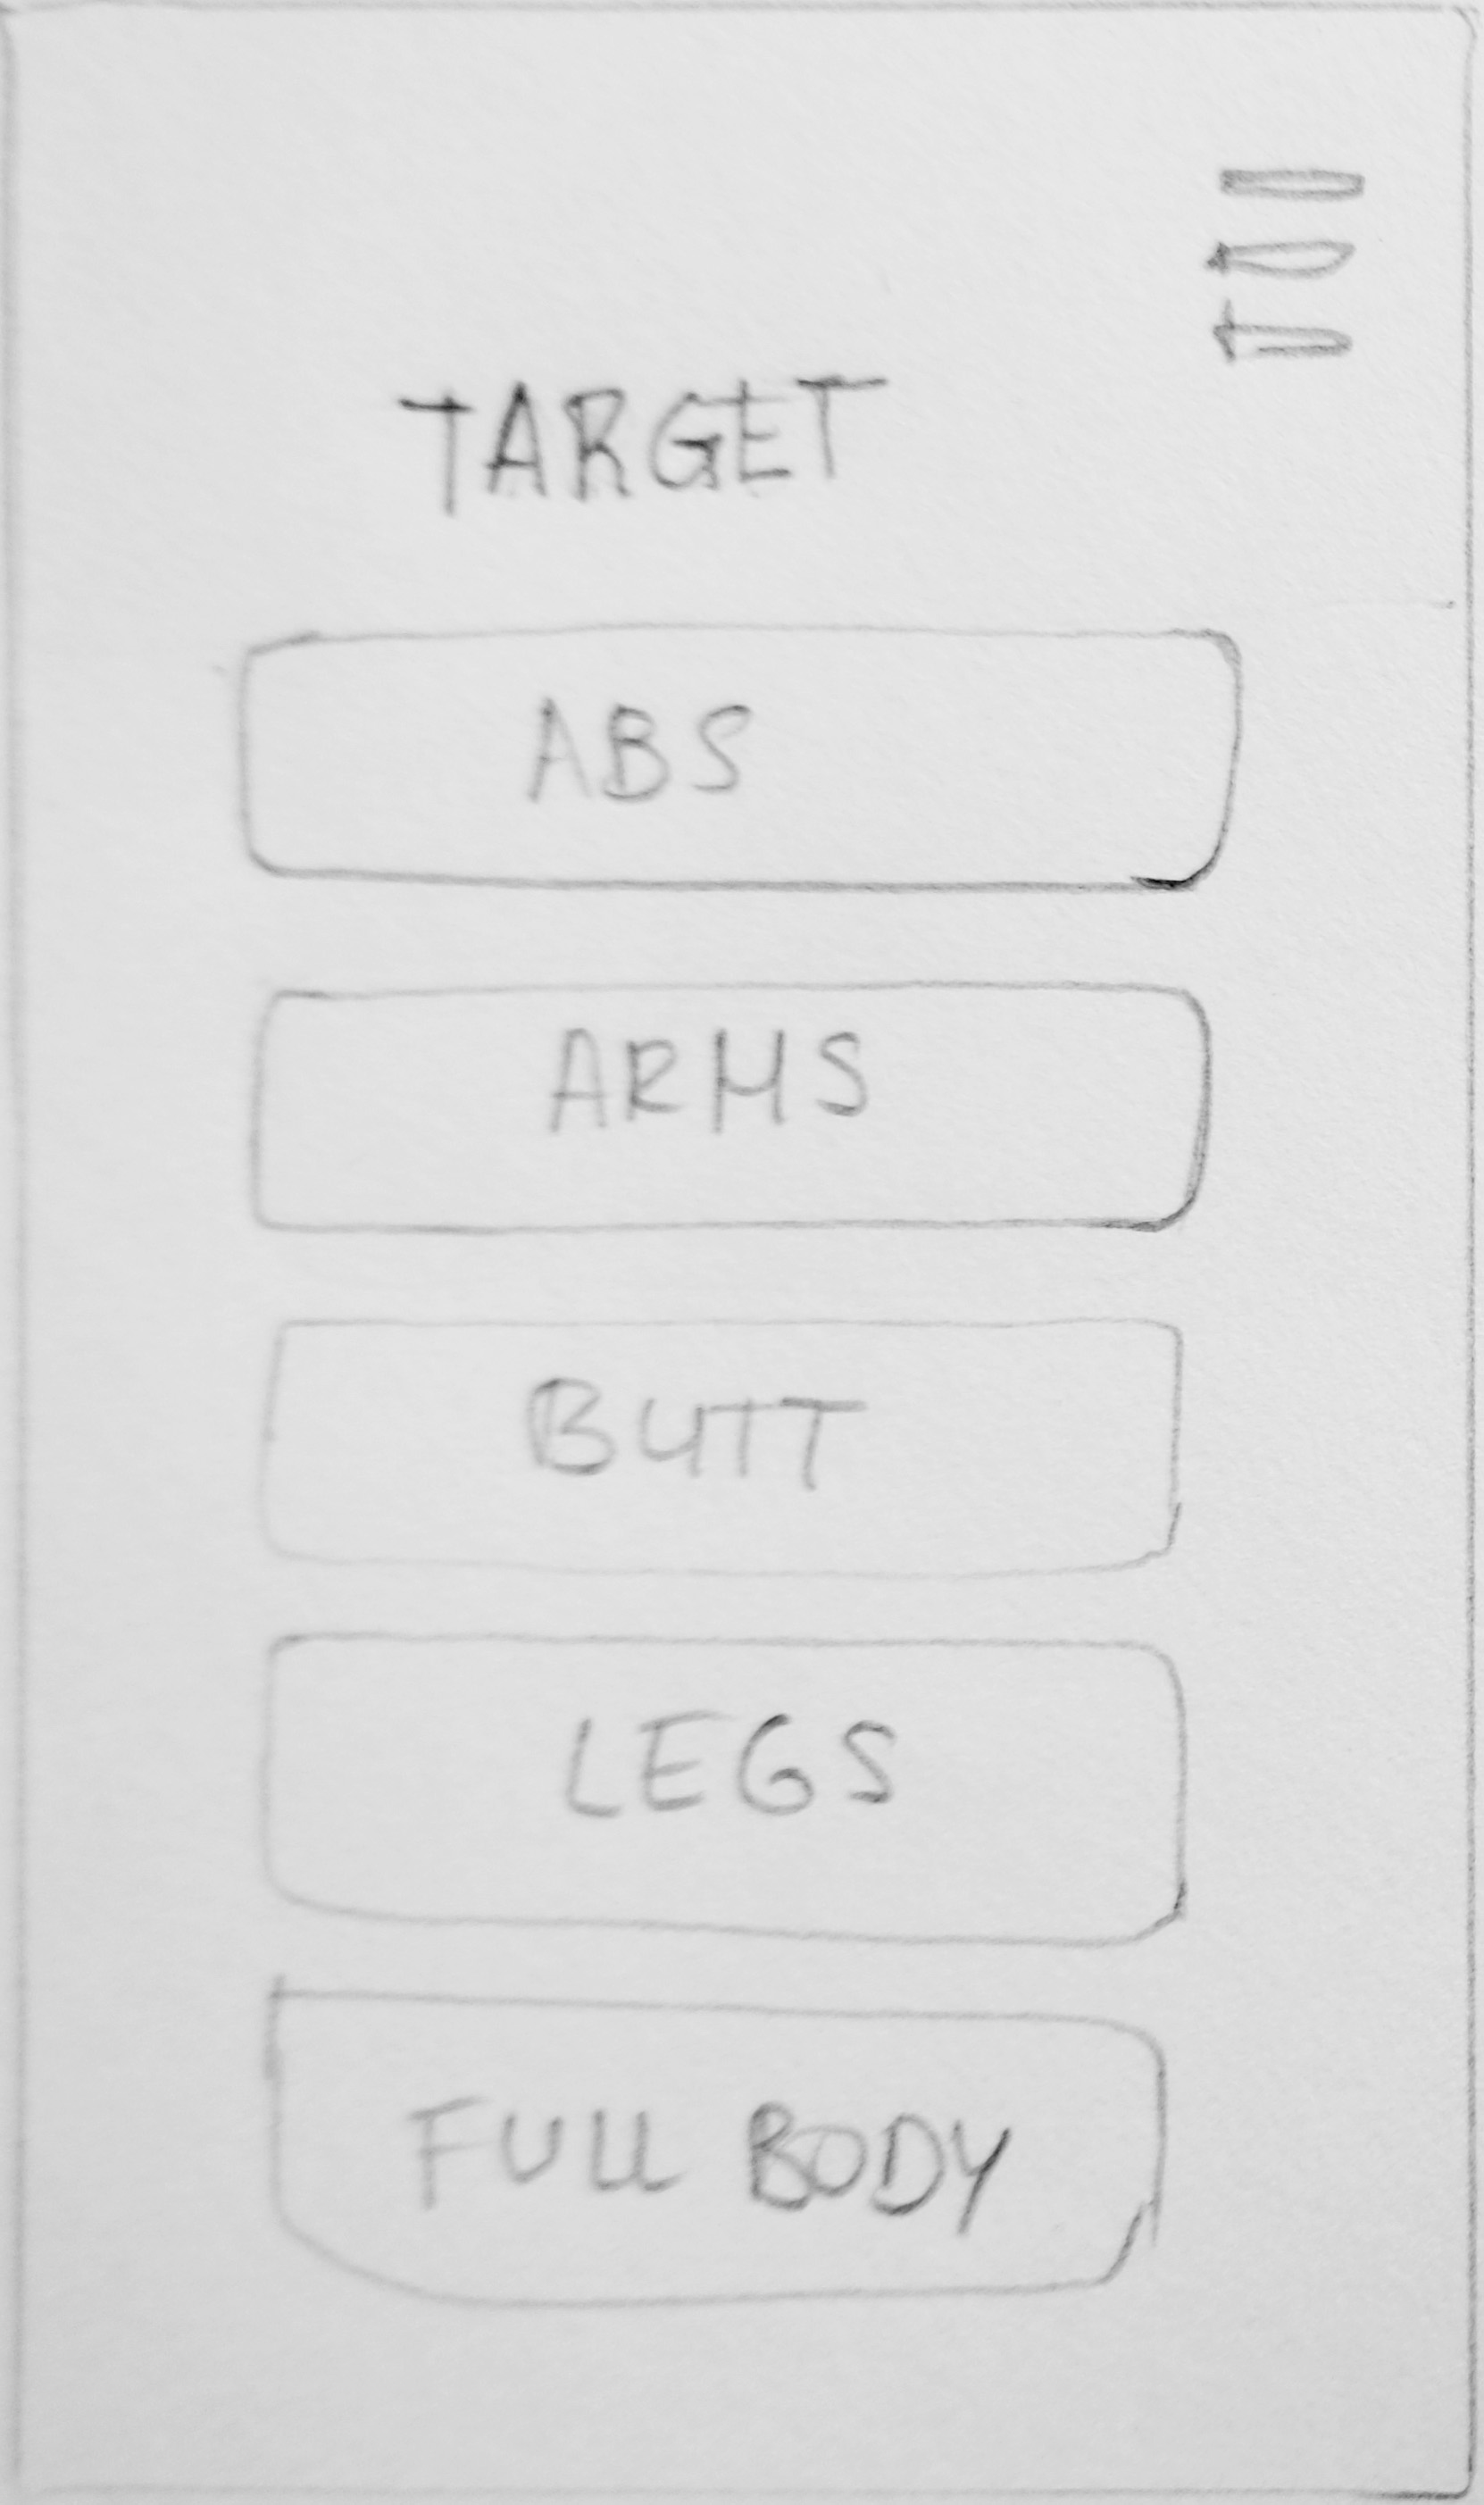 TARGET
ABS
ARMS
BUTT
LEGS
FULL BODY